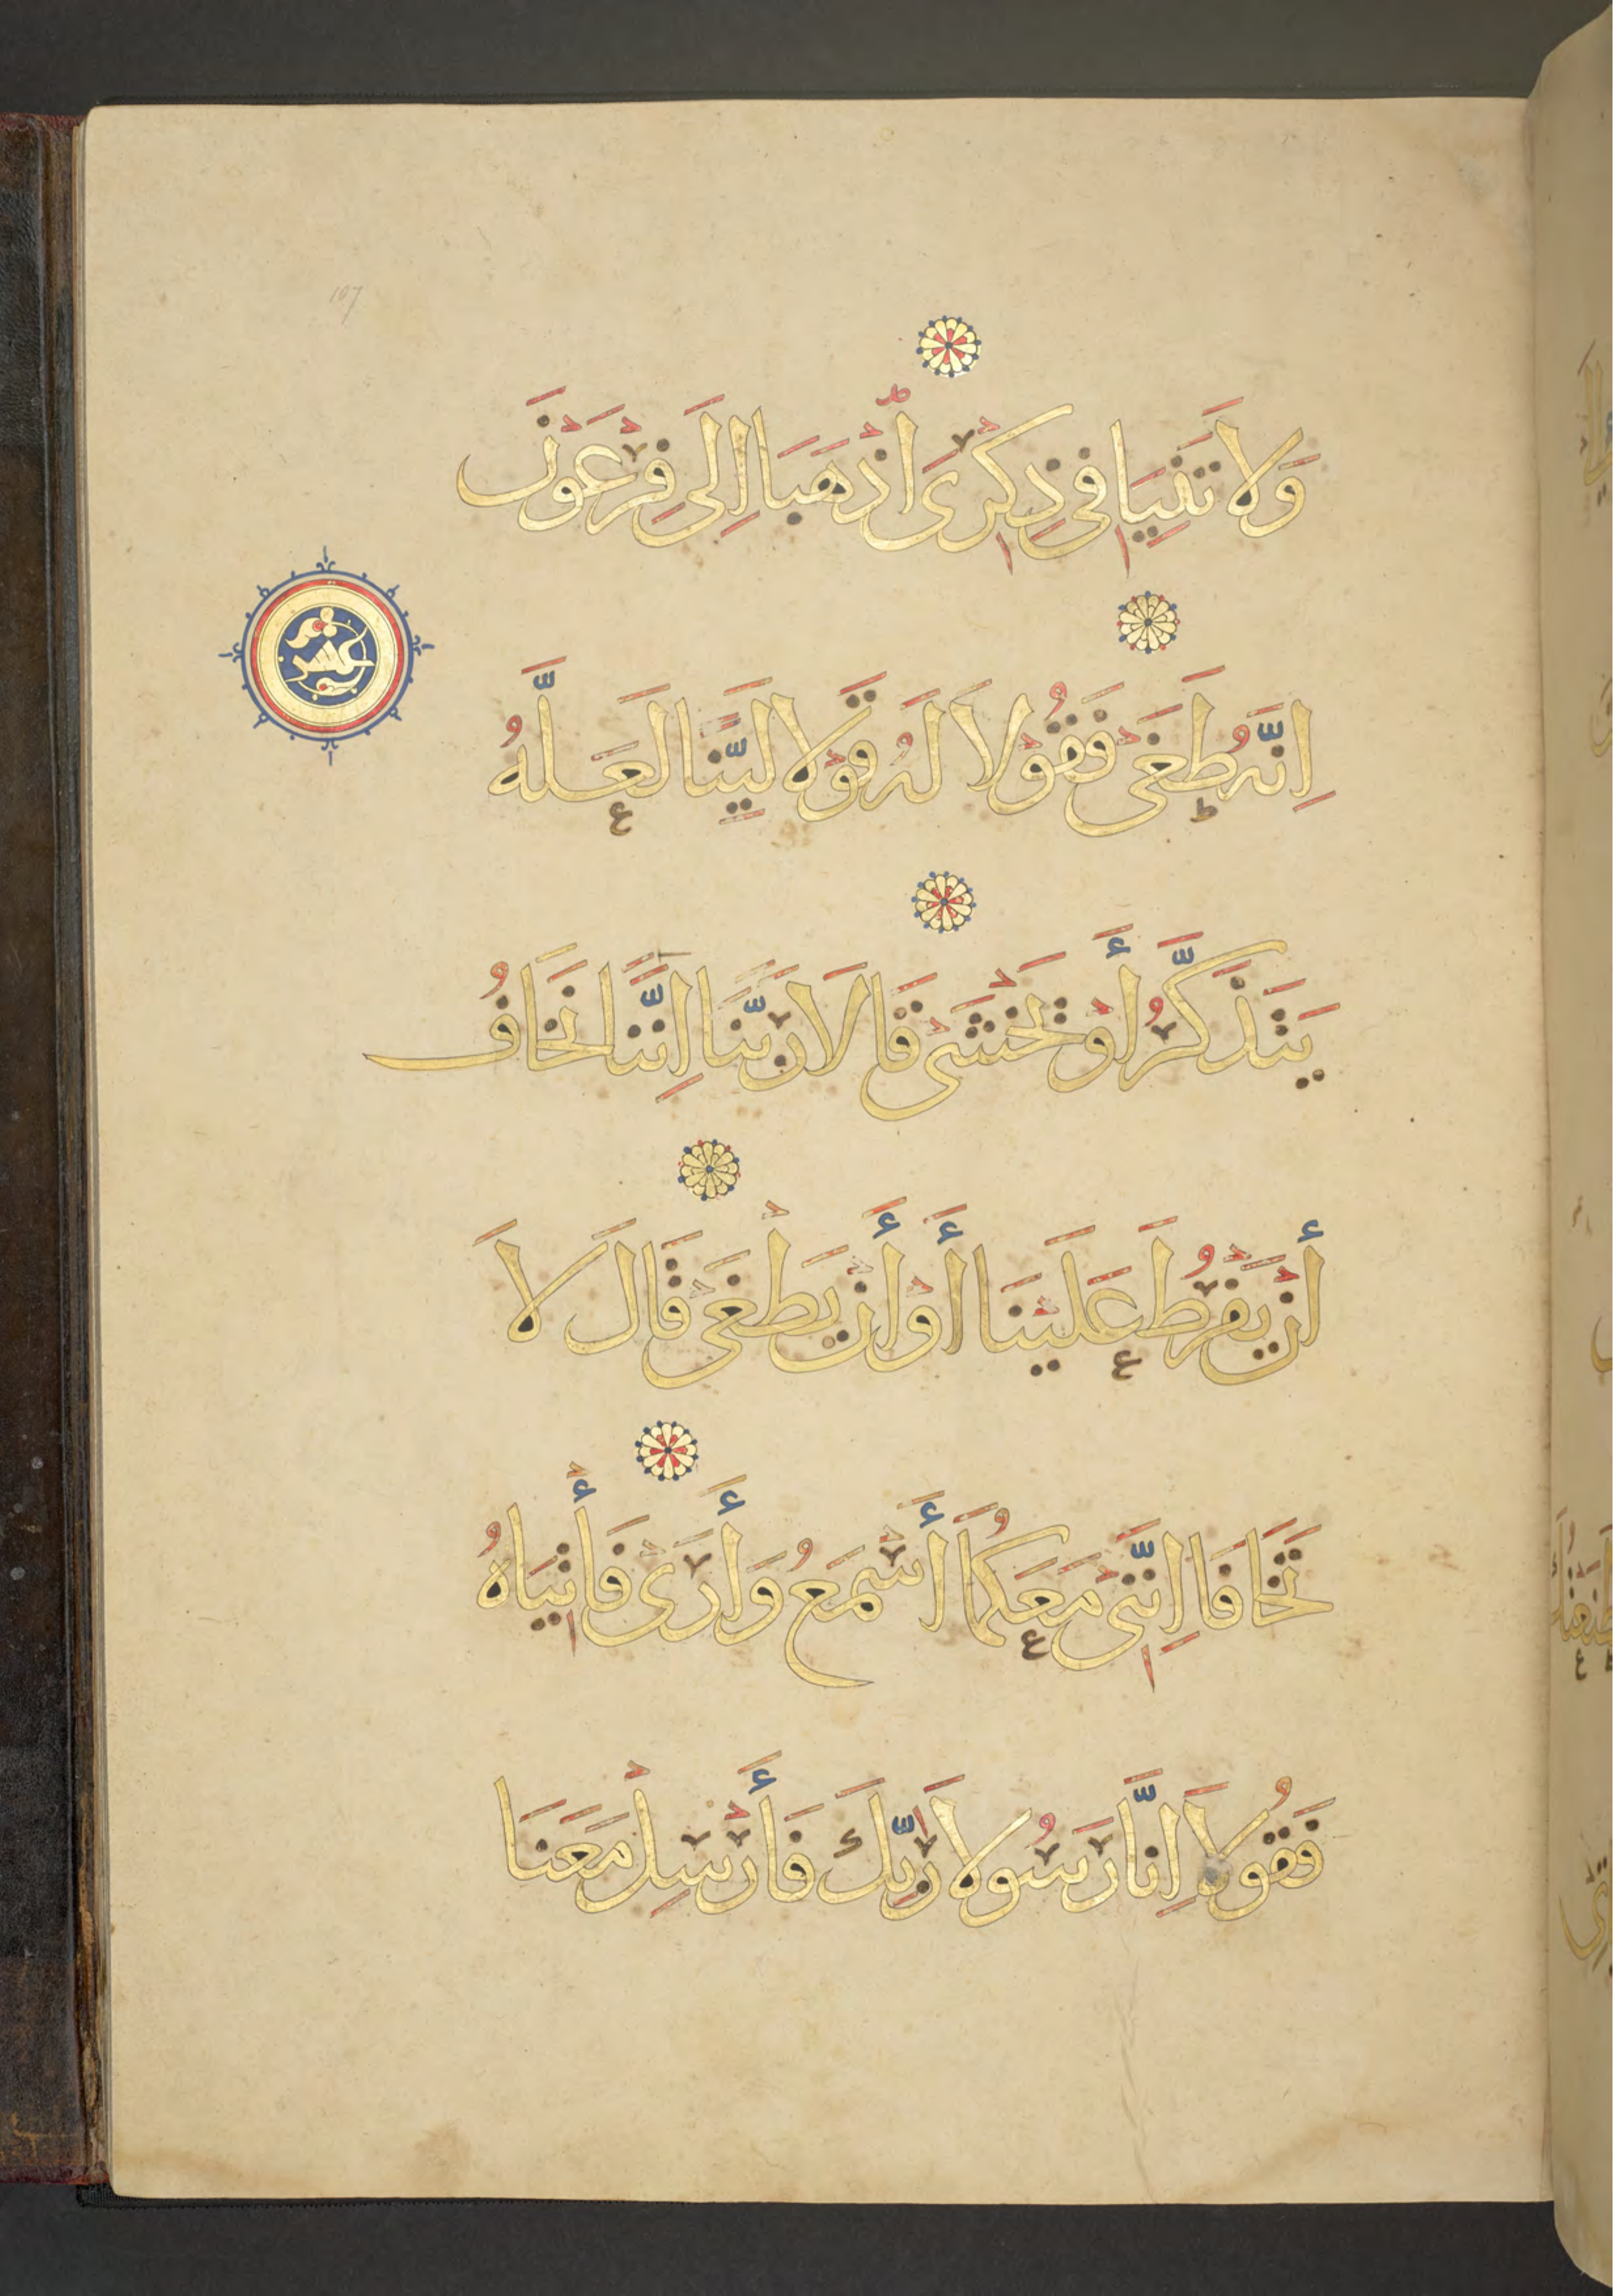 107
وَلَا تَنِيَا فِي ذِكْرِى ٱذْهَبَا إِلَى فِرْعَوْنَ
عشر
إِنَّهُ طَغَى فَقُوْلَا لَهُ قَوْلًا لَيِّنًا لَعَلَّهُ
يَتَذَكَّرُ أَوْ يَخْشَى قَالَا رَبَّنَا إِنَّنَا نَخَافُ
أَنْ يَفْرُطَ عَلَيْنَا أَوْ أَنْ يَطْغَى قَالَ لَا
تَخَافَا إِنَّنِى مَعَكُمَا أَسْمَعُ وَأَرَى فَأْتِيَاهُ
فَقُولَا إِنَّا رَسُولَا رَبِّكَ فَأَرْسِلْ مَعَنَا